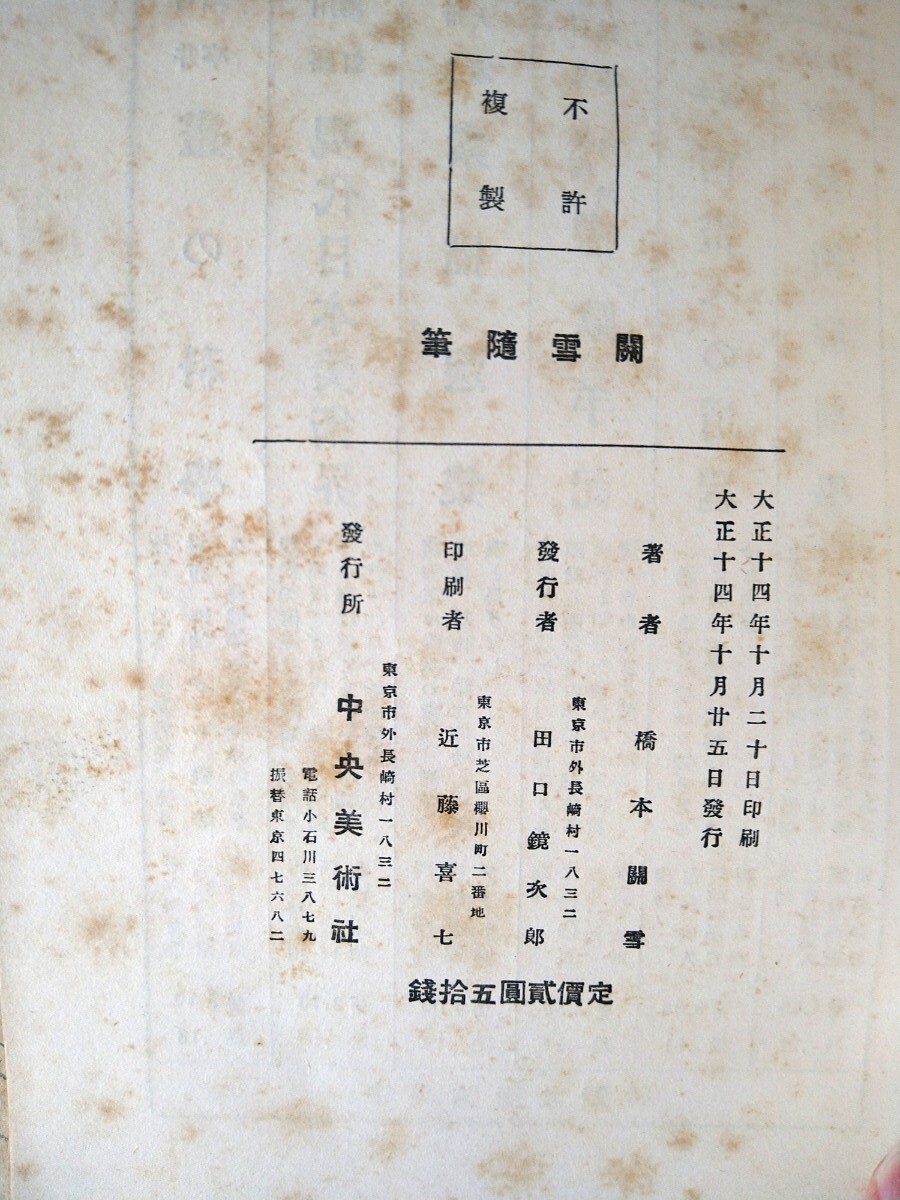 不許
複製
關雪隨筆
大正十四年十月二十日印刷
大正十四年十月廿五日發行
著者 橋本關雪
東京市外長崎村一八三二
發行者 田口鏡次郎
東京市芝區櫻川町二番地
印刷者 近藤喜七
東京市外長崎村一八三二
發行所 中央美術社
電話小石川三八七九
振替東京四七六八二
定價貳圓五拾錢